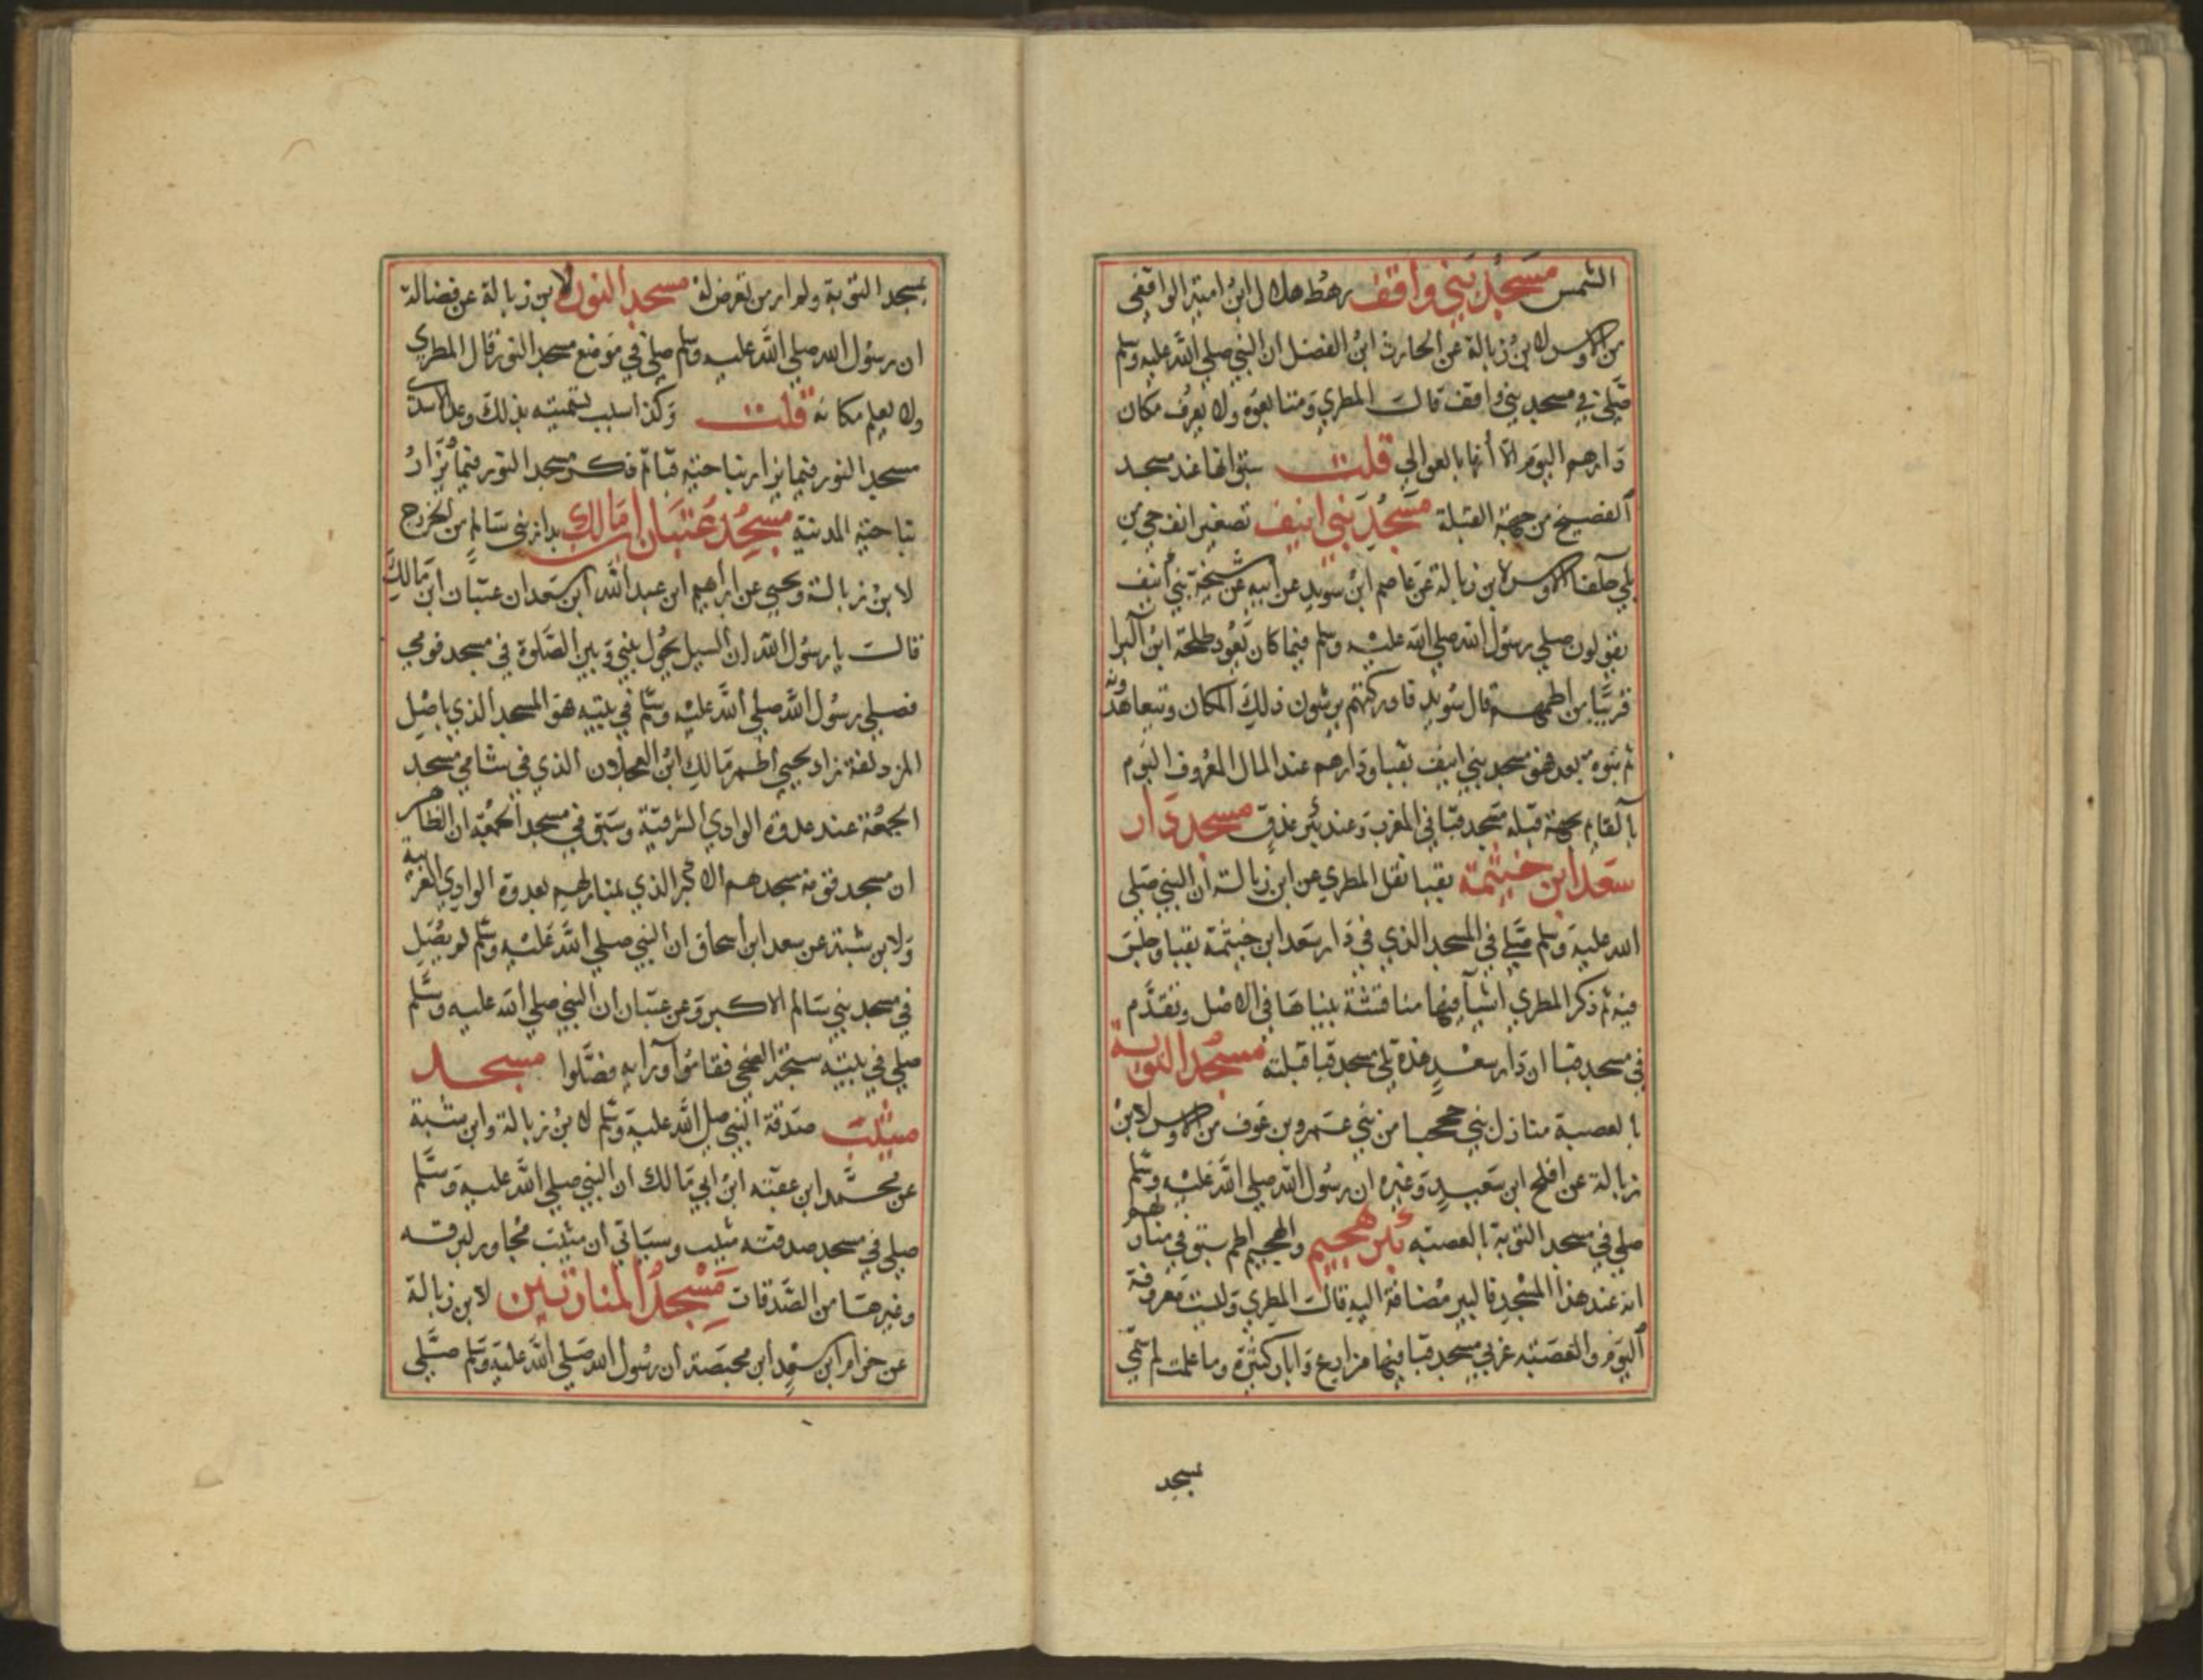 الشمس مسجد بني واقف رهط هلال ابن امية الواقفي
من الاوس لابن زبالة عن الحارث ابن الفضل ان النبي صلي الله عليه وسلم
صلي في مسجد بني واقف قالت المطري ومتابعوه ولا يعرف مكان
دارهم اليوم الا أنها بالعوالي قلت سبق انها عند مسجد
ألفضيخ من جهة القبلة مسجد بني انيف تصغير انف حي من
بلي حلفا الاوس لابن زبالة عن عاصم ابن سويد عن ابيه عن مشيخة بني انيف
يقولون صلي رسول الله صلي الله عليه وسلم فيما كان يعود طلحة ابن البرا
قريبا من اطمهم قال سويد فادركتهم يرشون ذلك المكان ويتعاهدونه
ثم بنوه بعد فهو مسجد بني انيف بقبا ودارهم عند المال المعروف اليوم
بالقايم بجهة قبلة مسجد قبا في المغرب وعند بئر عذق مسجد دار
سعد ابن خيثمة بقبا نقل المطري عن ابن زبالة أن النبي صلي
الله عليه وسلم صلي في المسجد الذي في دار سعد ابن خيثمة بقبا وجلس
فيه ثم ذكر المطري اشيآ فيها مناقشة بيناها في الاصل وتقدم
في مسجد قبا ان دار سعد هذه تلي مسجد قبا قبلته مسجد التوبة
بالعصبة منازل بني جحجبا من بني عمرو بن عوف من الاوس لابن
زبالة عن افلح ابن سعيد وغيره ان رسول الله صلي الله عليه وسلم
صلي في مسجد التوبة بالعصبه بئر هجيم والهجيم اطم سبق في منازلهم
انه عند هذا المسجد فالبير مضافة اليه قالت المطري وليست معروفة
أليوم والعصبه غربي مسجد قبا فيها مزارع وابار كثيرة وما علمت لم سمي
مسجد
بمسجد التوبة ولم ار من تعرض له مسجد النور لابن زبالة عن فضالة
ان رسول الله صلي الله عليه وسلم صلي في موضع مسجد النور قال المطري
ولا يعلم مكانه قلت وكذا سبب تسميته بذلك وعد الاسدي
مسجد النور فيما يزار بناحية قبا ثم ذكر مسجد النور فيما يزار
بناحية المدينة مسجد عتبان ابن مالك بدار بني سالم من الخزرج
لابن زبالة ويحيي عن ابراهيم ابن عبد الله ابن سعد ان عتبان ابن مالك
قالت يا رسول الله ان السيل يحول بيني وبين الصلوة في مسجد قومي
فصلي رسول الله صلي الله عليه وسلم في بيته فهو المسجد الذي باصل
المزدلفة زاد يحيي أطم مالك ابن العجلان الذي في شامي مسجد
الجمعة عند عدوة الوادي الشرقية وسبق في مسجد الجمعة ان الظاهر
ان مسجد قومه مسجدهم الاكبر الذي بمنازلهم بعدوة الوادي الغربية
ولابن شبة عن سعد ابن اسحاق ان النبي صلي الله عليه وسلم لم يصل
في مسجد بني سالم الاكبر وعن عتبان ان النبي صلي الله عليه وسلم
صلي في بيته سبحة الضحي فقاموا ورآه فصلوا مسجد
ميثب صدقة النبي صلي الله عليه وسلم لابن زبالة وابن شبة
عن محمد ابن عقبة ابن ابي مالك ان النبي صلي الله عليه وسلم
صلي في مسجد صدقته ميثب وسياتي ان ميثب مجاور لبرقه
وغيرها من الصدقات مسجد المنارتين لابن زبالة
عن حرام ابن سعد ابن محيصة ان رسول الله صلي الله عليه وسلم صلي